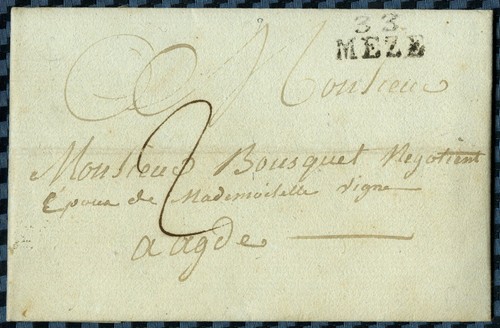 33
MEZE
Monsieur
2
Monsieur Bousquet Negotient
Epoux de Mademoiselle Vigne
a agde